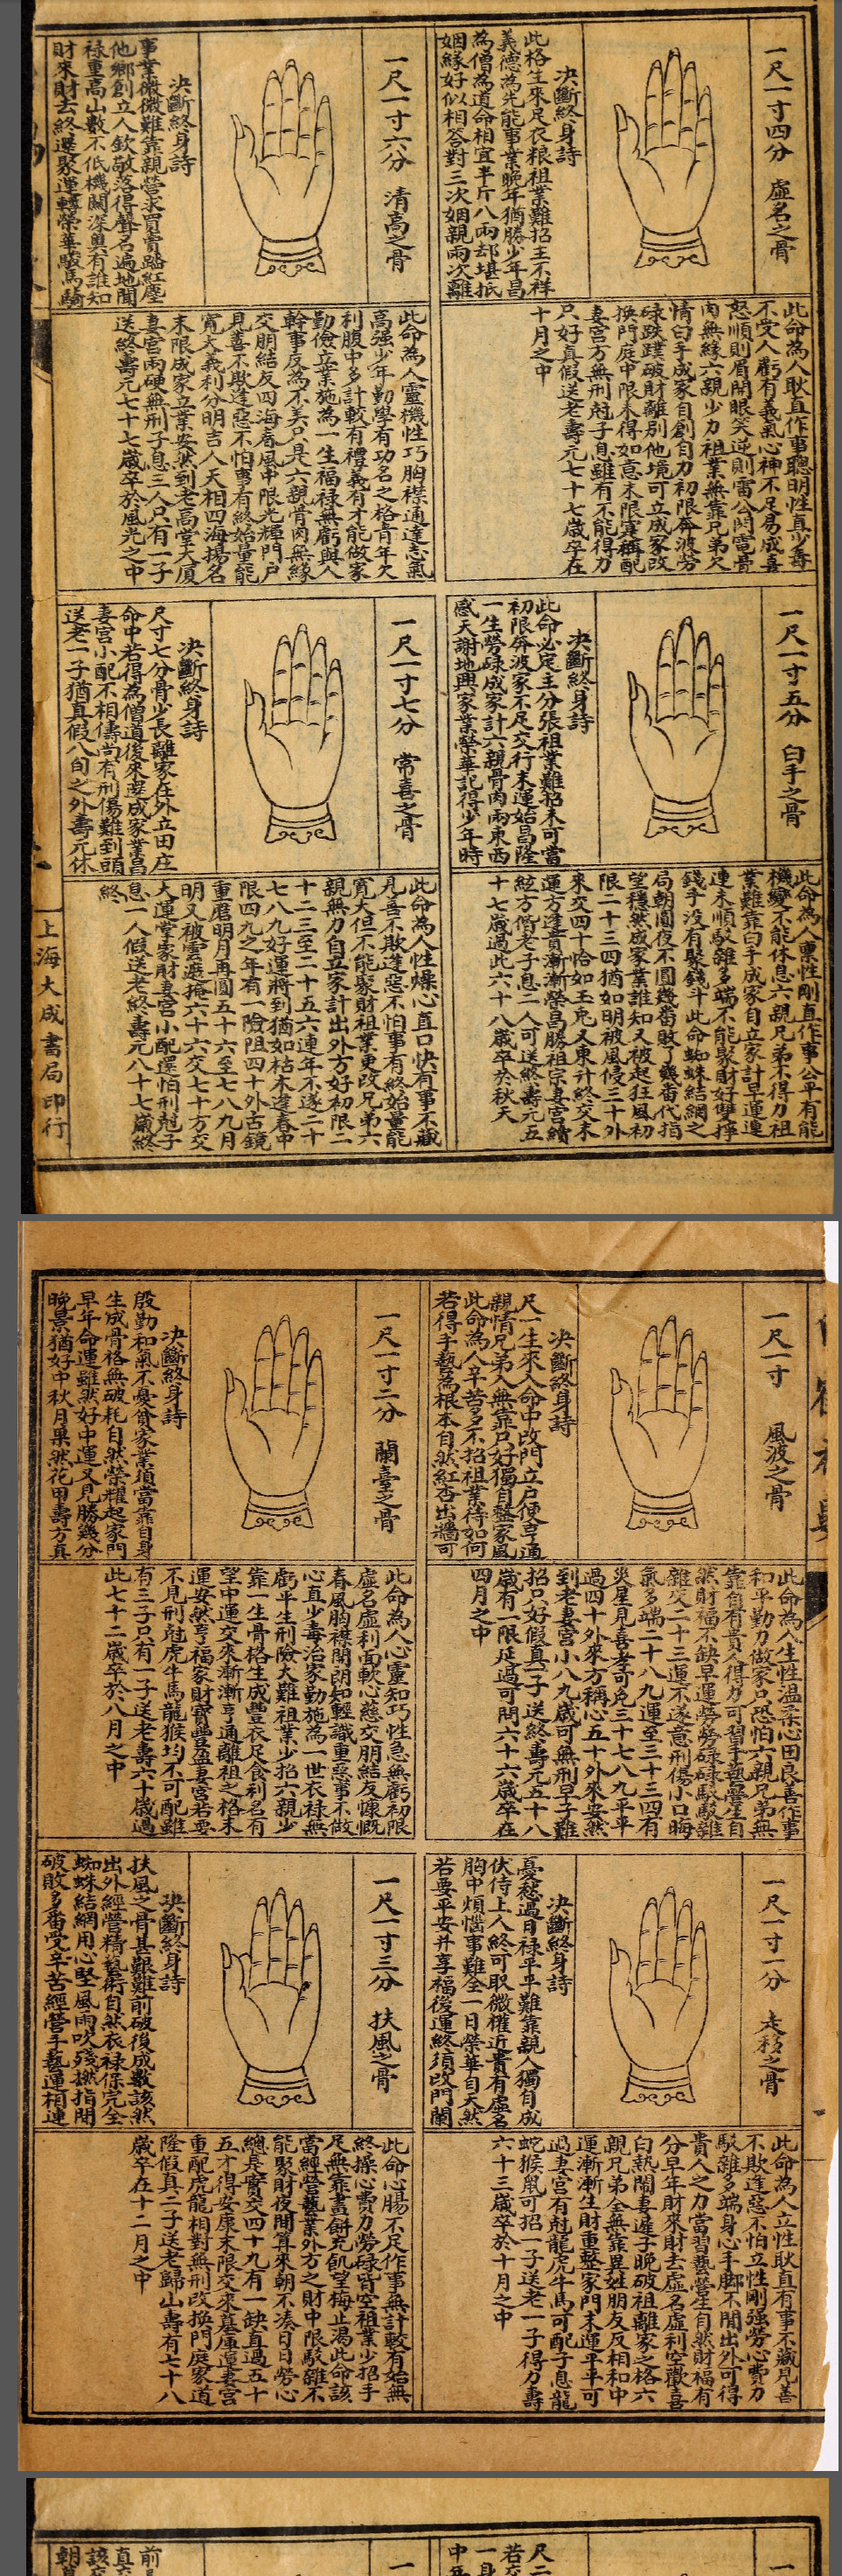 一尺一寸四分 虛名之骨
決斷終身詩
此格生來足衣粮祖業難招主不祥
義德為先能事業晚年猶勝少年昌
為僧為道命相宜半斤八兩却堪抵
姻緣好似相答對三次姻親兩次離
此命為人耿直作事聰明性直少毒
不受人虧有義氣心神不足易成喜
怒順則眉開眼笑逆則雷公閃電骨
肉無緣六親少力祖業無靠兄弟欠
情白手成家自創自力初限奔波勞
碌跌蹼破財離別他境可立成家改
換門庭中限未得如意末限寔稱配
妻宮方無刑尅子息雖有不能得力
只好真假送老壽元七十七歲卒在
十月之中
一尺一寸五分 白手之骨
決斷終身詩
此命必定主分張祖業難招未可當
初限奔波家不足交行末運始昌隆
一生勞碌成家計六親骨肉兩東西
感天謝地興家業榮華記得少年時
此命為人稟性剛直作事公平有能
機變不能休息六親兄弟不得力祖
業難靠白手成家自立家計早運連
連未順駁雜多端不能聚財好雙掙
錢手沒有聚錢斗此命蜘蛛結網之
局朝圓夜不圓幾番敗了幾番代指
望穩然成家業誰知又被起狂風初
限二十三四猶如明被風侵三十外
來交四十恰如玉兎又東升終交末
運方逢貴漸漸榮昌勝祖宗妻宮續
絃方偕老子息二人可送終壽元五
十七歲過此六十八歲卒於秋天
一尺一寸六分 清高之骨
決斷終身詩
事業微微難靠親營求買賣踏紅塵
他鄉創立人欽敬落得聲名遍地聞
祿重高山數不低機關深奧有誰知
財來財去終還聚運轉榮華駿馬騎
此命為人靈機性巧胸襟通達志氣
高強少年勤學有功名之格青年欠
利腹中多計較有禮義有才能做家
勤儉立業施為一生福祿無虧與人
幹事反為不美只是六親骨肉無緣
交朋結友四海春風中限光輝門戶
見善不欺逢惡不怕事有終始量能
寬大義利分明吉人天相四海揚名
末限成家立業安然到老高堂大厦
妻宮兩硬無刑子息三人只有一子
送終壽元七十七歲卒於風光之中
一尺一寸七分 常喜之骨
決斷終身詩
尺寸七分骨少長離家在外立田庄
命中若得為僧道後來產成家業昌
妻宮小配不相傷尚有刑傷難到頭
送老一子猶真假八旬之外壽元休
此命為人性燥心直口快有事不藏
見善不欺逢惡不怕事有終始量能
寬大但不能聚財祖業更改兄弟六
親無力自立家計出外方好初限二
十二三至二十五六連年不遂二十
七八九好運將到猶如枯木逢春中
限四九之年有一險阻四十外古鏡
重磨明月再圓五十六至七八九月
明又被雲遮掩六十六交七十方交
大運掌家財妻宮小配還怕刑尅子
息一人假送老終壽元八十七歲終
終
上海大成書局印行
一尺一寸 風波之骨
決斷終身詩
尺一生來入命中改門立戶便亨通
親情兄弟入無靠只好獨自整家風
此命為人辛苦多不招祖業待如何
若得手藝為根本自然紅杏出牆可
此命為人生性温柔心田良善作事
和平勤力做家只恐怕六親兄弟無
靠自有貴人得力可習手藝營生自
然財福不缺早運勞勞碌碌駁駁雜
雜交二十三運不遂意刑傷小口晦
氣多端二十八九運至三十三四有
災星見喜孝可免三十七八九平平
過四十外來方稱心五十外來安然
到老妻宮小八九歲可無刑早子難
招只好假真一子送終壽元五十八
歲有一限延過可問六十六歲卒在
四月之中
一尺一寸一分 走移之骨
決斷終身詩
憂愁過日祿平平難靠親人獨自成
伏侍上人終可取微權近貴有虛名
胸中煩惱事難全一日榮華自天然
若要平安并享福後運終須改門闌
此命為人立性耿直有事不藏見善
不欺逢惡不怕立性剛强勞心費力
駁雜多端身心手脚不閒出外可得
貴人之力當習藝營生自然財福有
分早年財來財去虛名虛利空歡喜
白熱鬧妻遲子晚破祖離家之格六
親兄弟全無靠異姓朋友反相和中
運漸漸生財重整家門末運平平可
過妻宮有尅龍虎牛馬可配子息龍
蛇猴鼠可招一子送老一子得力壽
六十三歲卒於十月之中
一尺一寸二分 蘭臺之骨
決斷終身詩
殷勤和氣不憂貧家業須當靠自身
生成骨格無破耗自然榮耀起家門
早年命運雖然好中運又見勝幾分
晚景猶好中秋月果然花甲壽方真
此命為人心靈知巧性急無虧初限
虛名虛利面軟心慈交朋結友慷慨
春風胸襟開朗如輕識重惡事不做
心直少毒治家勤施為一世衣祿無
虧平生刑險大難祖業少招六親少
靠一生骨格生成豐衣足食利名有
望中運交來漸漸亨通離祖之格末
運安然亨福家財寶豐盈妻宮若要
不見刑尅虎牛馬龍猴均不可配雖
有三子只有一子送老壽六十歲過
此七十二歲卒於八月之中
一尺一寸三分 扶風之骨
決斷終身詩
扶風之骨甚艱難前破後成數該然
出外經營精藝術自然衣祿保完全
蜘蛛結網用心堅風雨吹殘撚指間
破敗多番受辛苦經營手藝運相連
此命心腸不足作事無計較有始無
終操心費力勞碌皆空祖業少招手
足無靠畫餅充飢望梅止渴此命該
當經營藝業外方之財中限駁雜不
能聚財夜間算來朝不湊日日勞心
總是實交四十九有一缺直過五十
五才得安康末限交來墓庫運妻宮
重配虎龍相對無刑改換門庭家道
隆假真二子送老歸山壽有七十八
歲卒在十二月之中